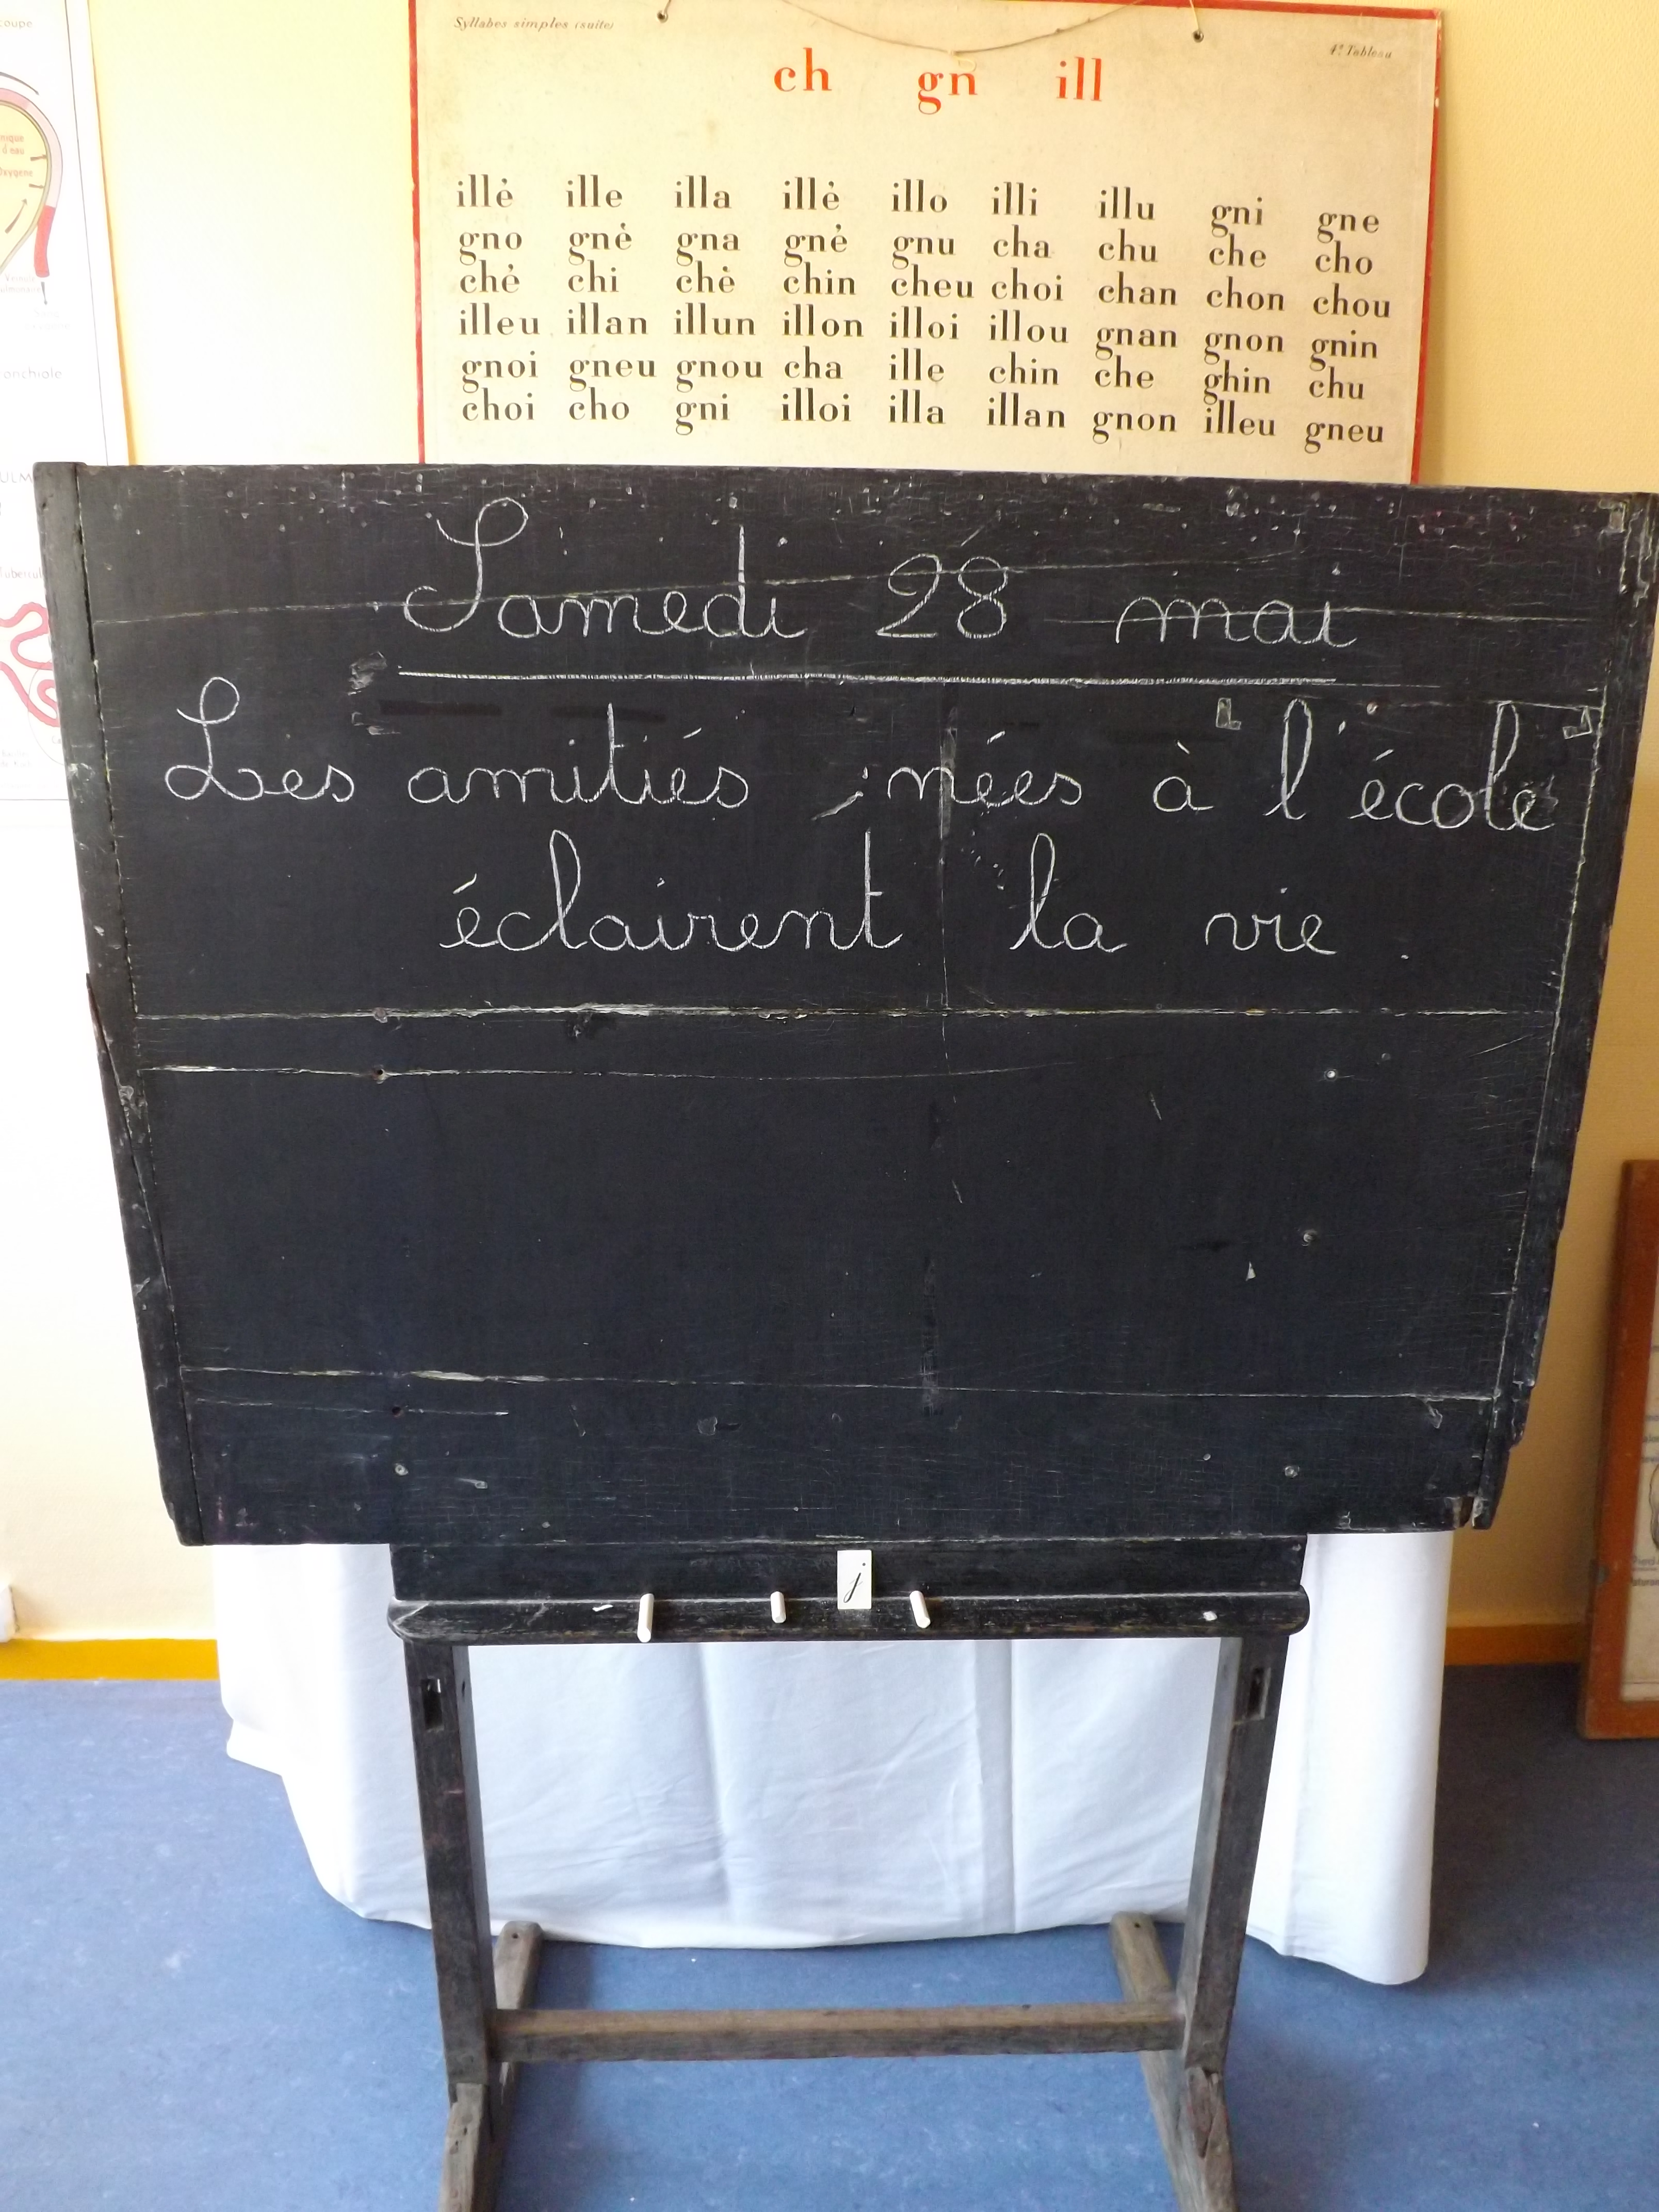 Syllabes simples (suite)
4e Tableau
ch gn ill
illé ille illa illè illo illi illu gni gne
gno gné gna gnè gnu cha chu che cho
ché chi chè chin cheu choi chan chon chou
illeu illan illun illon illoi illou gnan gnon gnin
gnoi gneu gnou cha ille chin che ghin chu
choi cho gni illoi illa illan gnon illeu gneu
Samedi 28 mai
Les amitiés nées à l'école
éclairent la vie.
j
coupe
Oxygene
onchiole